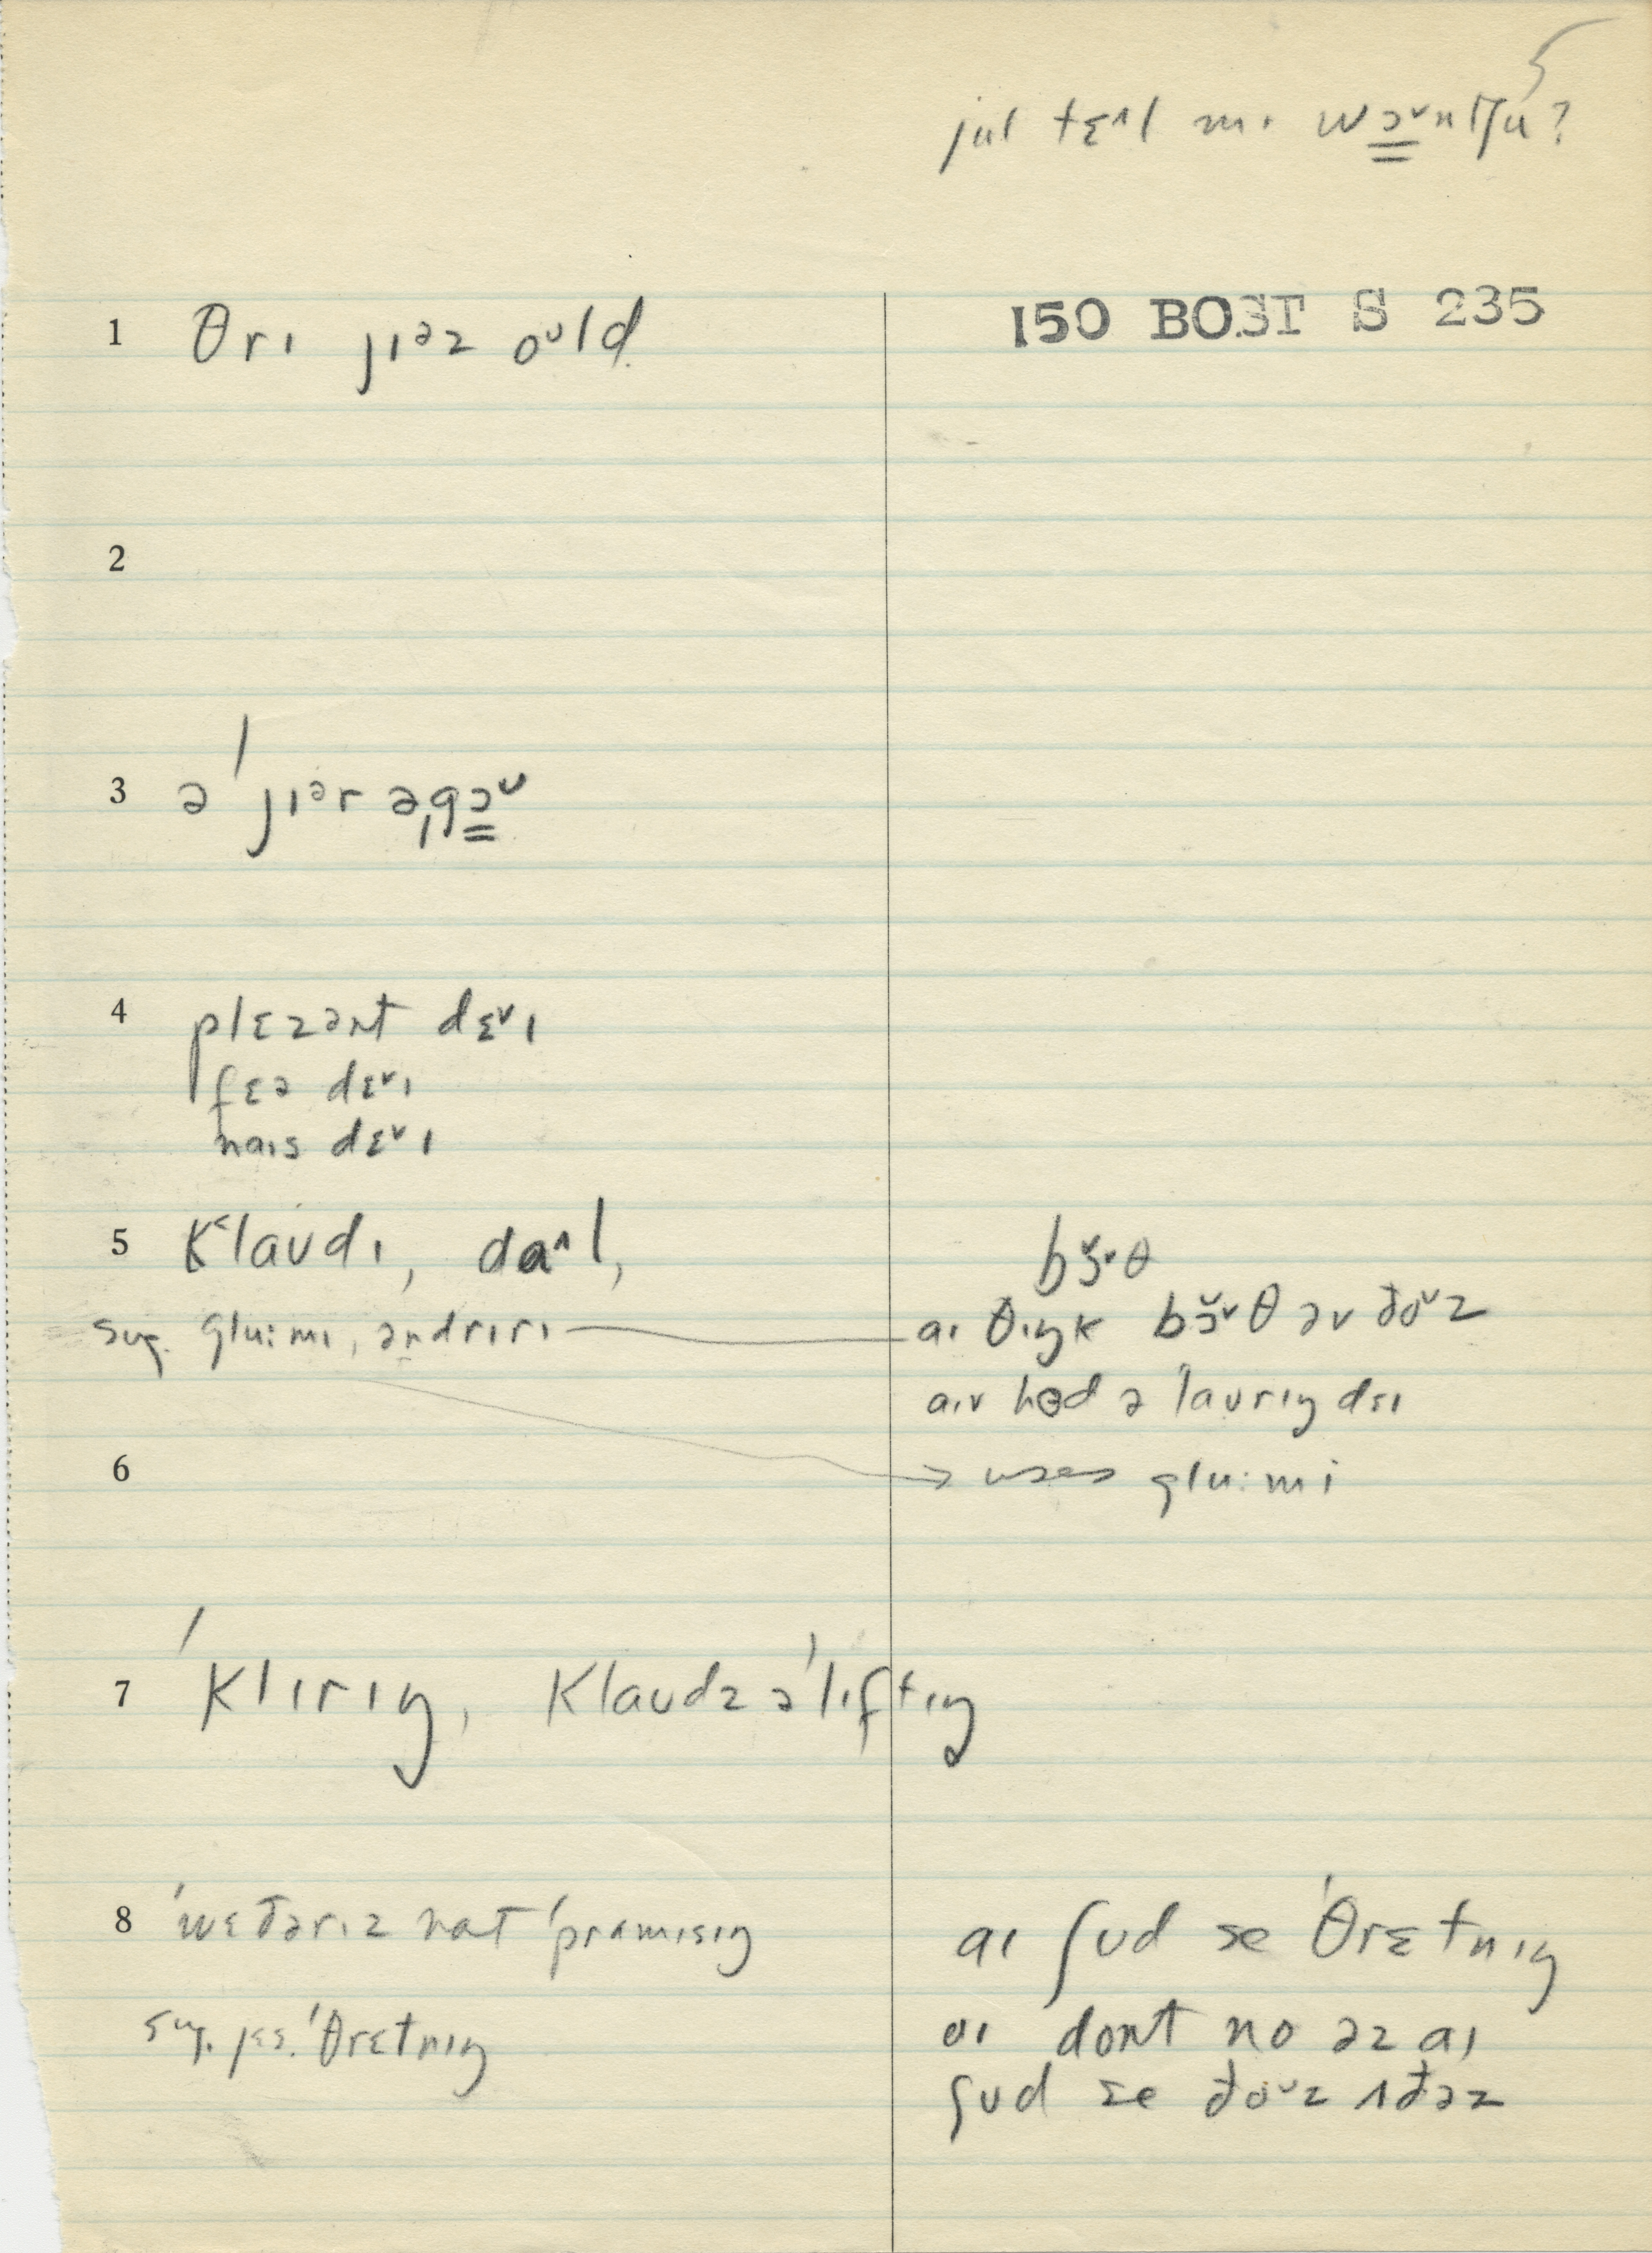 jul tɛ^l mɪ wɔ̳ᵛntʃu?
150 BOST S 235
1 θrɪ jɪᵊz oᶷld
2
3 ə ˈjɪᵊr əˌgɔ̳ᶷ
4 plɛzənt dɛᵛɪ
fɛə dɛᵛɪ
naɪs dɛᵛɪ
5 K˂laʊdɪ, da^l,
sug. glu:mɪ, əndrɪrɪ
bɔ̆ᵛθ
aɪ θɪŋk bɔ̆ᵛθ əv đoᶷz
aɪv hɘd ə laʊrɪŋ dɛɪ
6 → uses glu:mi
7 ˈklɪrɪŋ, klaʊdz əˈlɪftɪŋ
8 ˈwɛđərɪz nat ˈpramɪsɪŋ
sug. jɛs. ˈθrɛtnɪŋ
aɪ ʃʊd se ˈθrɛtnɪŋ
aɪ dont no əz aɪ
ʃʊd se đoᶷz ʌđəz